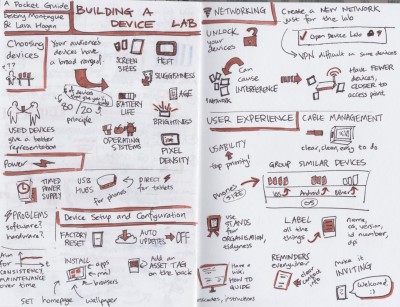 A Pocket Guide
Destiny Montague
& Lara Hogan
BUILDING A
DEVICE LAB
Choosing
devices
??
Your audience's
devices have
a broad range!
SCREEN
SIZES
HEFT
SLUGGISHNESS
AGE
80/20
principle
BATTERY
LIFE
BRIGHTNESS
OPERATING
SYSTEMS
PIXEL
DENSITY
USED DEVICES
give a better
representation
POWER
TIMED
POWER
SUPPLY
USB
HUBS
for phones
DIRECT
for tablets
PROBLEMS
software?
hardware?
Aim
for
CONSISTENCY
MAINTENANCE
over time
Device Setup and Configuration
FACTORY
RESET
AUTO
UPDATES
OFF
INSTALL
apps
e-mail
Browsers
Add an
ASSET TAG
on the back
SET homepage wallpaper
NETWORKING
Create a NEW NETWORK
just for the lab
UNLOCK
your
devices
Open Device Lab
VPN difficult on some devices
Can
cause
INTERFERENCE
HAVE FEWER
DEVICES,
CLOSER TO
access point
USER EXPERIENCE
CABLE MANAGEMENT
USABILITY
top priority!
clear, clean, easy to do
GROUP SIMILAR DEVICES
phone
size
iOS
Android
Other
OS
Use
STANDS
for
ORGANISATION,
tidyness
LABEL
all the
things
name,
os, version,
id number,
dpi
Have a
wiki
HOW TO
GUIDE
REMINDERS
everywhere
clear
contact
info
make it
INVITING
Welcome
:)